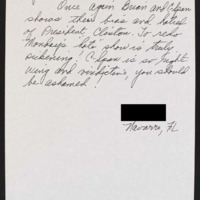 Once again Brian and CSpan
shows their bias and hatred
of President Clinton. To redo
Monday's "hate" show is truly
sickening! C-Span is so right
wing and vindictive, you should
be ashamed!
Navarre, FL